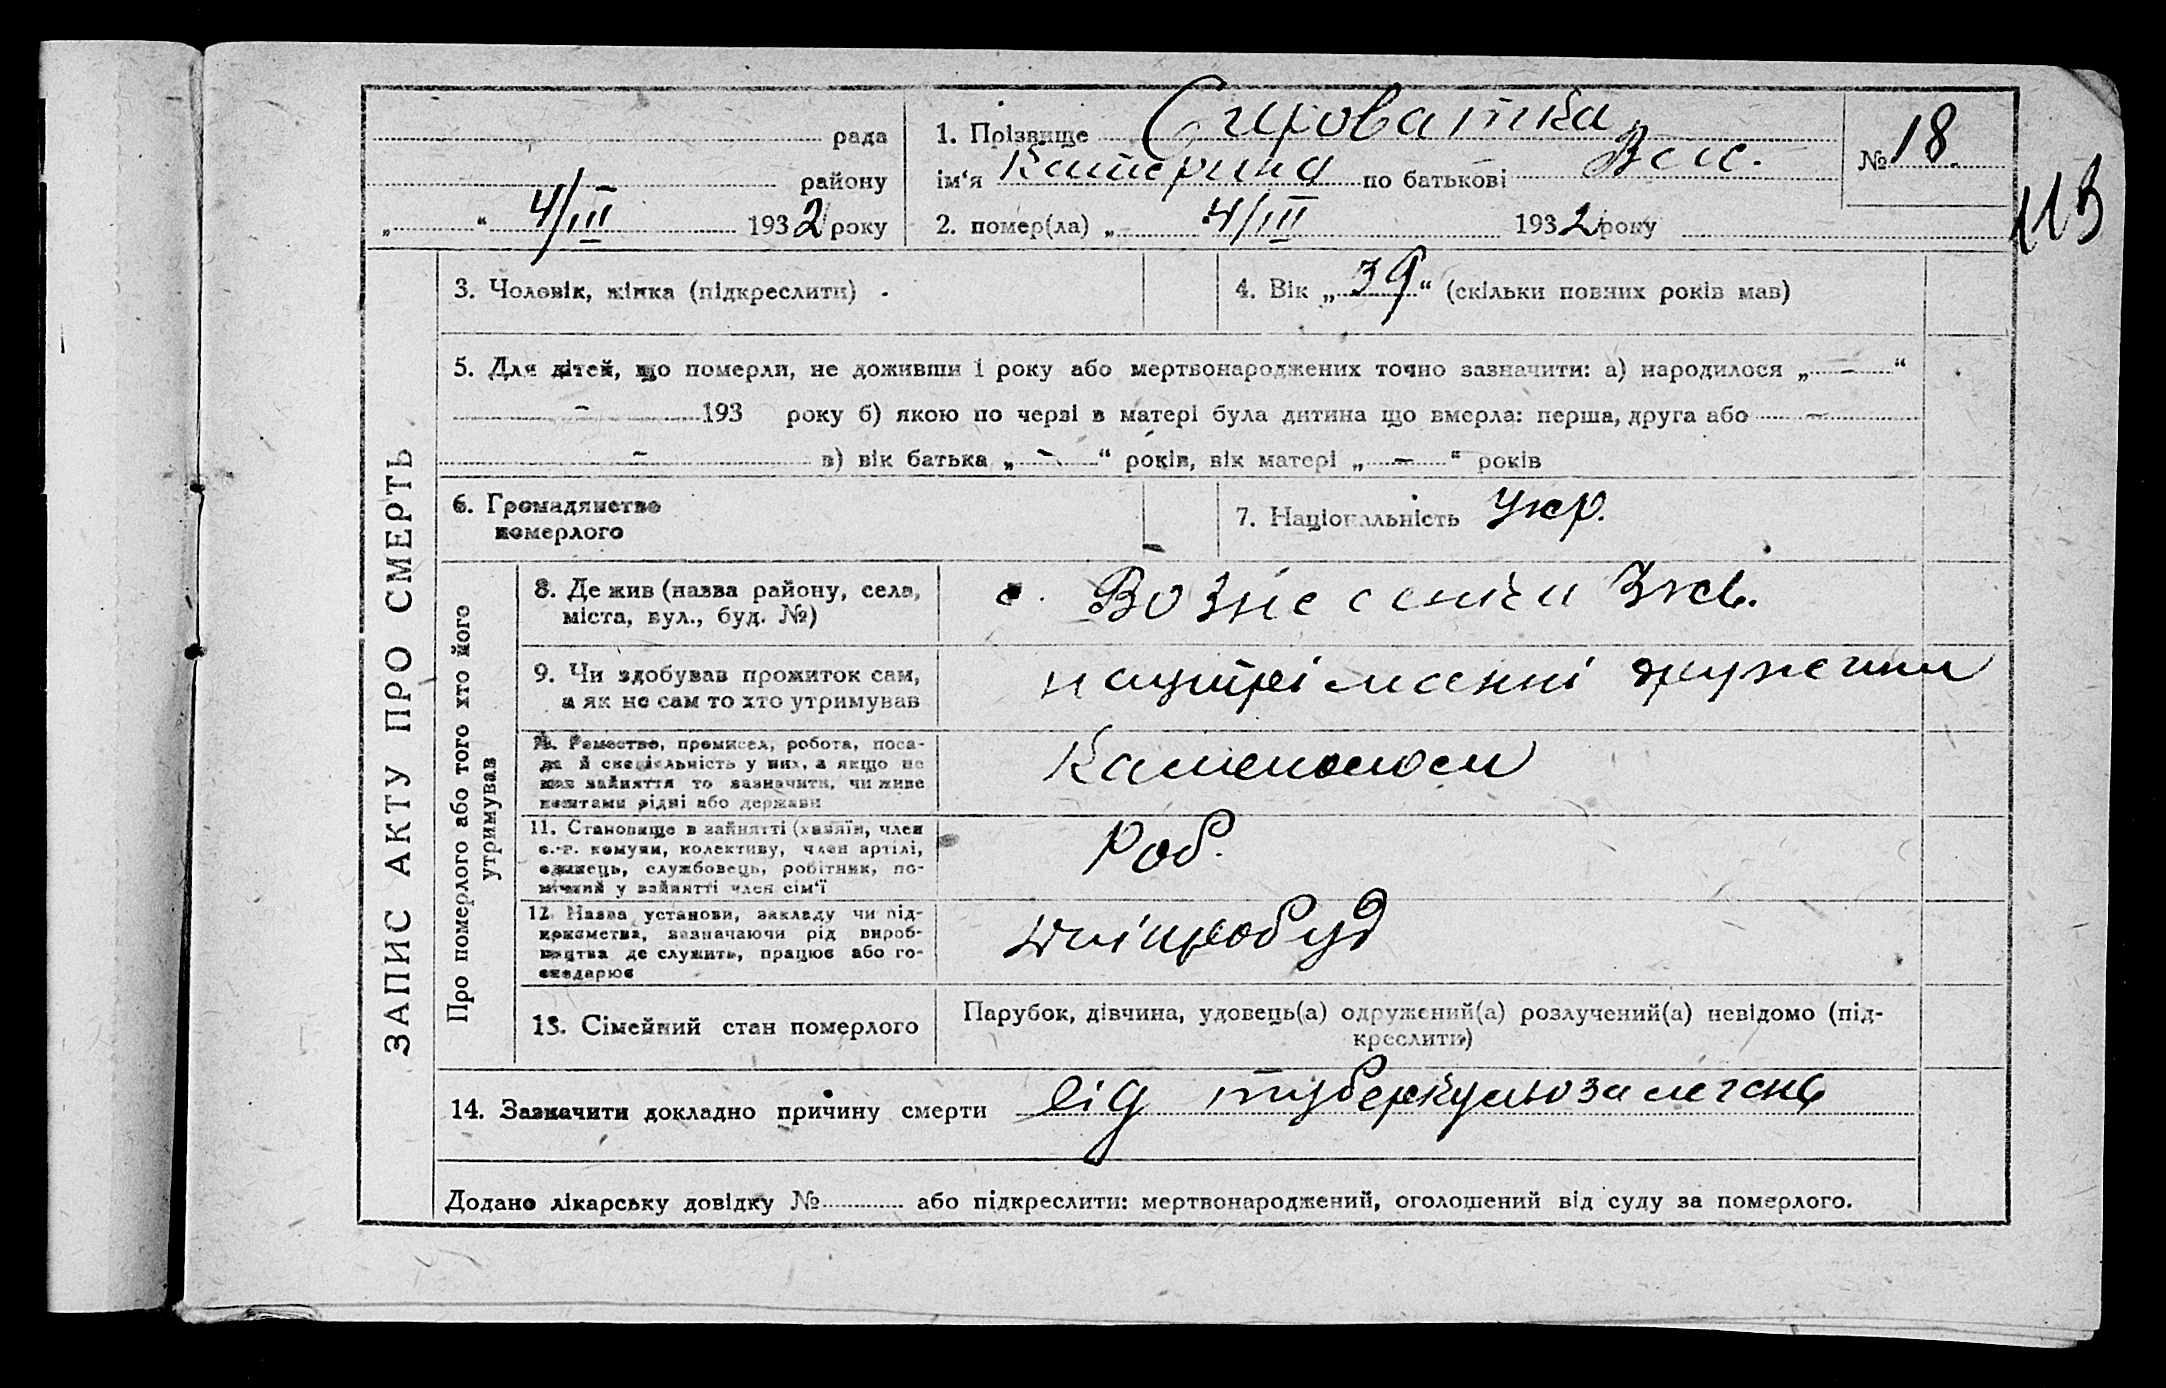 рада
району
„ “ 4/III 1932 року
1. Прізвище Сироватка
ім‘я Катерина по батькові Вас.
2. помер(ла) „ 4/III 1932 року
№ 18
113
ЗАПИС АКТУ ПРО СМЕРТЬ
3. Чоловік, жінка (підкреслити)
4. Вік „39“ (скільки повних років мав)
5. Для дітей, що померли, не доживши 1 року або мертвонароджених точно зазначити: а) народилося „-“
- 193 року б) якою по черзі в матері була дитина що вмерла: перша, друга або -
- в) вік батька „-“ років, вік матері „-“ років
6. Громадянство
померлого
7. Національність Укр.
Про померлого або того хто його
утримував
8. Де жив (назва району, села,
міста, вул., буд. №)
с. Вознесенка
9. Чи здобував прожиток сам,
а як не сам то хто утримував
на утріманні дружини
10. Ремество, промисел, робота, поса-
да й спеціяльність у них, а якщо не
мав зайняття то зазначити, чи живе
коштами рідні або держави
Каменоломи
11. Становище в зайнятті (хазяїн, член
с.-г. комуни, колективу, член артілі,
одинець, службовець, робітник, по-
мічний у зайнятті член сім‘ї
Роб.
12. Назва установи, закладу чи під-
приємства, зазначаючи рід вироб-
ництва де служить, працює або го-
сподарює
Дніпробуд
13. Сімейний стан померлого
Парубок, дівчина, удовець(а) одружений(а) розлучений(а) невідомо (під-
креслити)
14. Зазначити докладно причину смерти від туберкульоза легень
Додано лікарську довідку № або підкреслити: мертвонароджений, оголошений від суду за померлого.